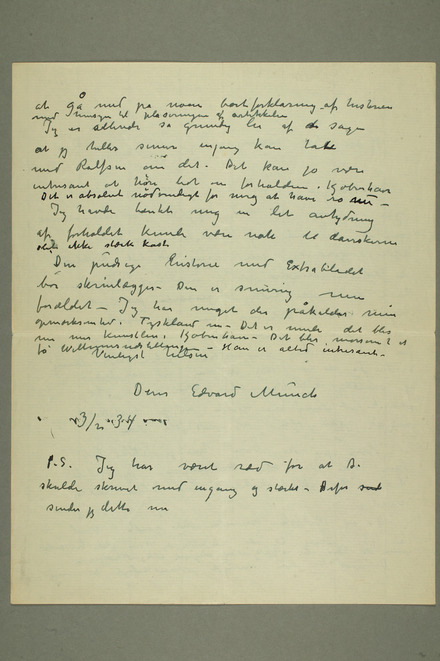 at gå med på noen bortforklaring af historien
med hensyn til plaseringen af artikkelen
Jeg er allerede så grundig lei af de sager
at jeg heller senere engang kan tale
med Ralfsen om det. Det kan jo være
interesant at høre lidt om forholdene i Kjøbenhavn
Det er absolut nødvendigt for mig at have ro nu –
Jeg havde tænkt mig en let antydning
af forholdet kunde være nok til danskerne
ikke stærk kost
Den historie med Extrabladet
bør skrinlægges – Den er nu
forældet – Jeg har meget der påkalder min
opmærksomhed. Tyskland nu – Det er det
kunstliv i Kjøbenhavn – Det blir morsomt at
få Willumsenudstillingen – Han er altid interesant –
Venligst hilsen
Deres Edvard Munch
P.S. Jeg har været ræd for at De
skulde skrevet med engang og stærkt – Derfor
sender jeg dette nu